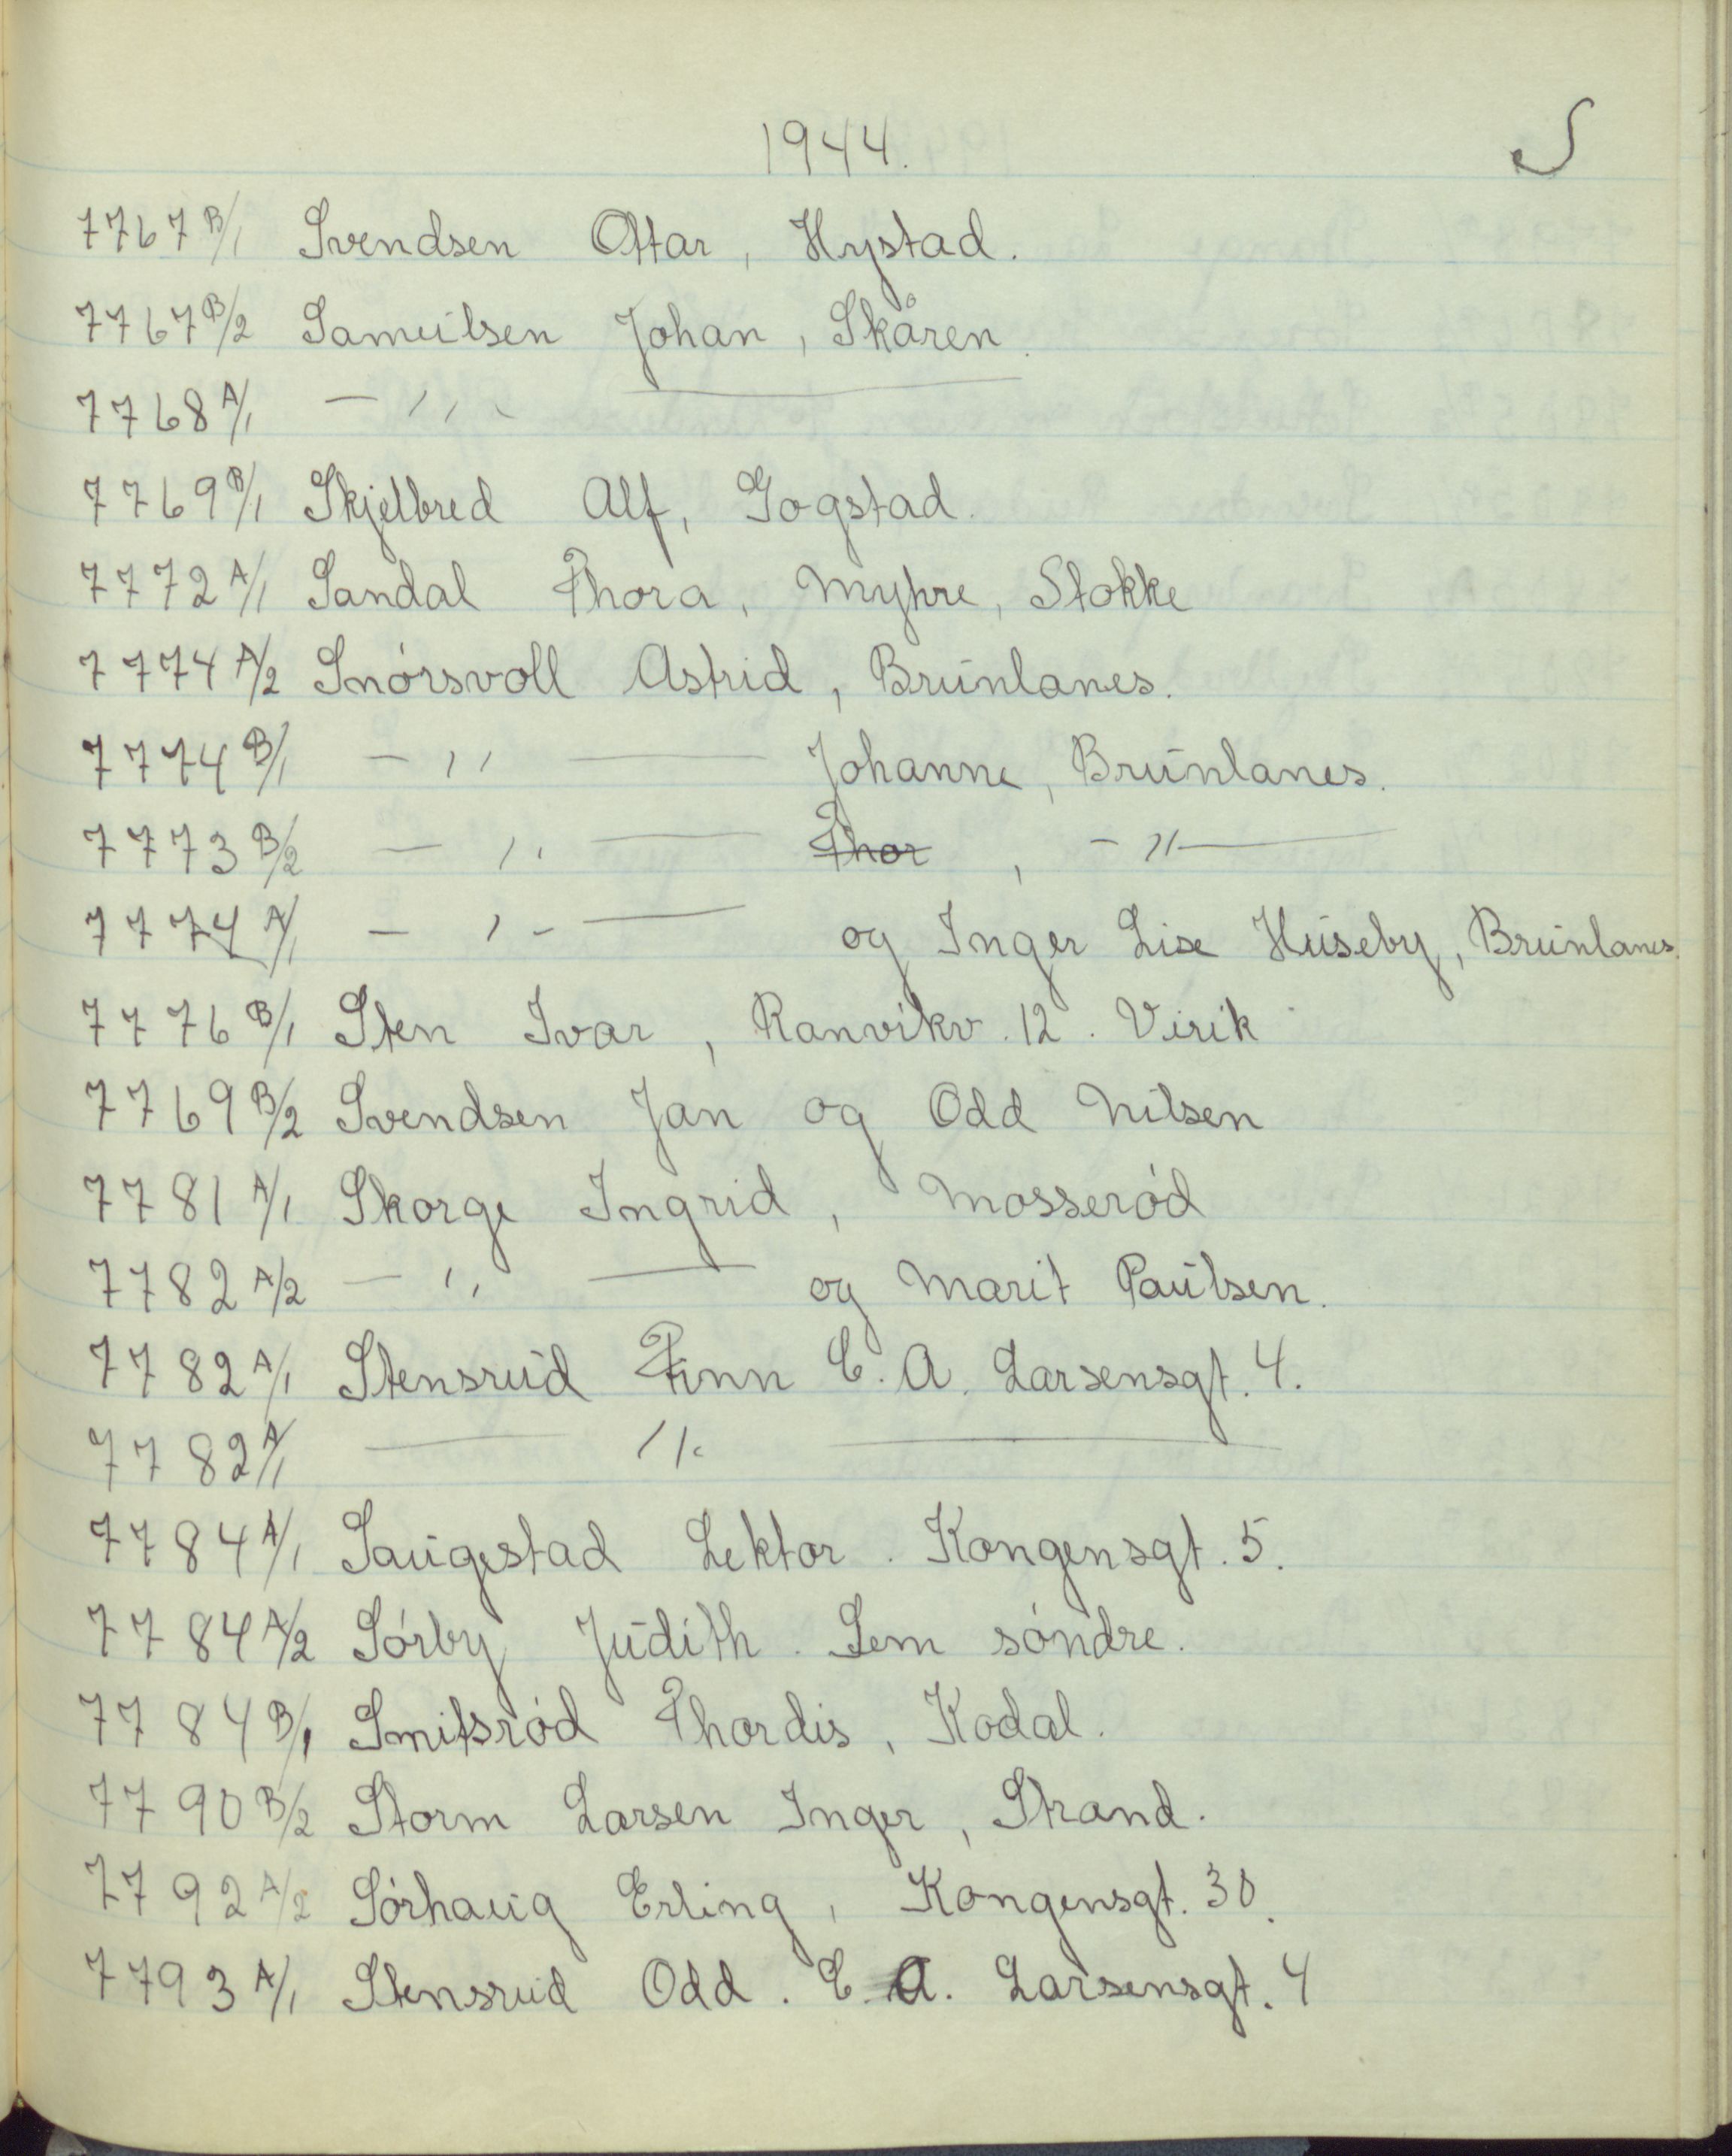 1944.
S
7767 B/1 Svendsen Ottar, Hystad.
7767 B/2 Samuelsen Johan, Skåren.
7768 A/1 — " —
7769 B/1 Skjelbred Alf, Gogstad.
7772 A/1 Sandal Thora, Myhre, Stokke
7774 A/2 Snørsvoll Astrid, Brunlanes.
7774 B/1 — " — Johanne, Brunlanes.
7773 B/2 — " — Thor, — " —
7774 A/1 — " — og Inger Lise Huseby, Brunlanes.
7776 B/1 Sten Ivar, Ranvikv. 12. Virik
7769 B/2 Svendsen Jan og Odd Nilsen
7781 A/1 Skorge Ingrid, Mosserød
7782 A/2 — " — og Marit Paulsen.
7782 A/1 Stensrud Finn C. A. Larsensgt. 4.
7782 A/1 — " —
7784 A/1 Saugestad Lektor. Kongensgt. 5.
7784 A/2 Sørby Judith. Sem søndre.
7784 B/1 Smitsrød Thordis, Kodal.
7790 B/2 Storm Larsen Inger, Strand.
7792 A/2 Sørhaug Erling, Kongensgt. 30.
7793 A/1 Stensrud Odd. C. A. Larsensgt. 4